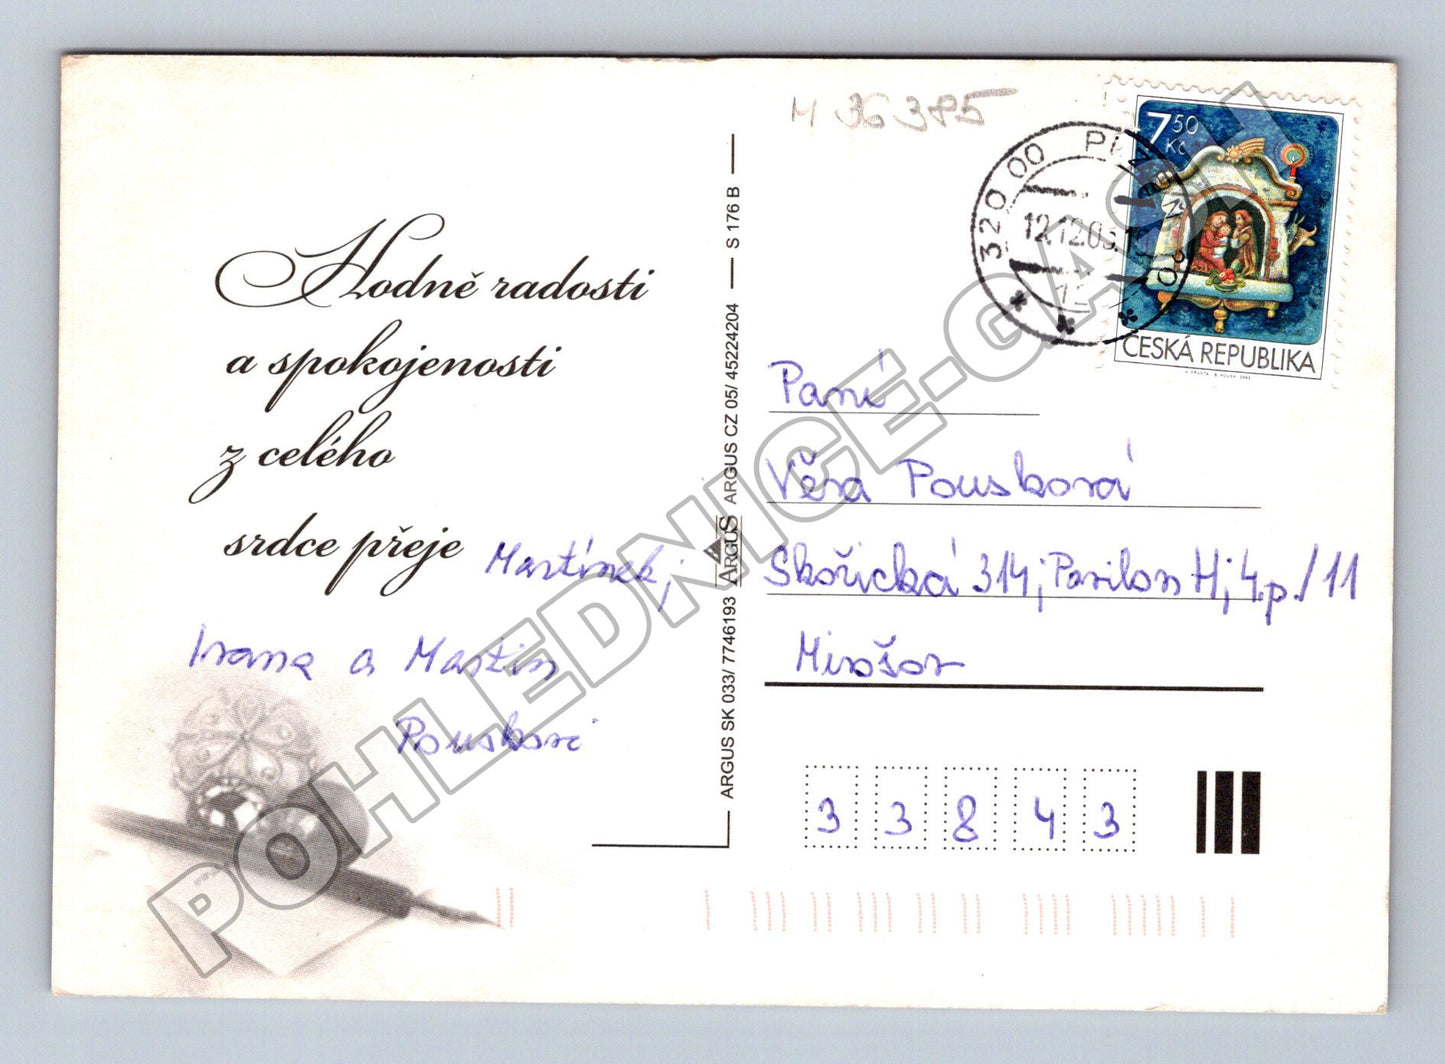 M 36385
Hodně radosti
a spokojenosti
z celého
srdce přeje
Martínek,
Ivana a Martin
Pouskovi
S 176 B
ARGUS CZ 05/ 45224204
ARGUS
ARGUS SK 033/ 7746193
320 00
12.12.05
7 50
Kč
ČESKÁ REPUBLIKA
Paní
Věra Pousková
Skořická 314, Pavilon H, 4.p./11
Mirošov
3 3 8 4 3
POHLEDNICE-GASH